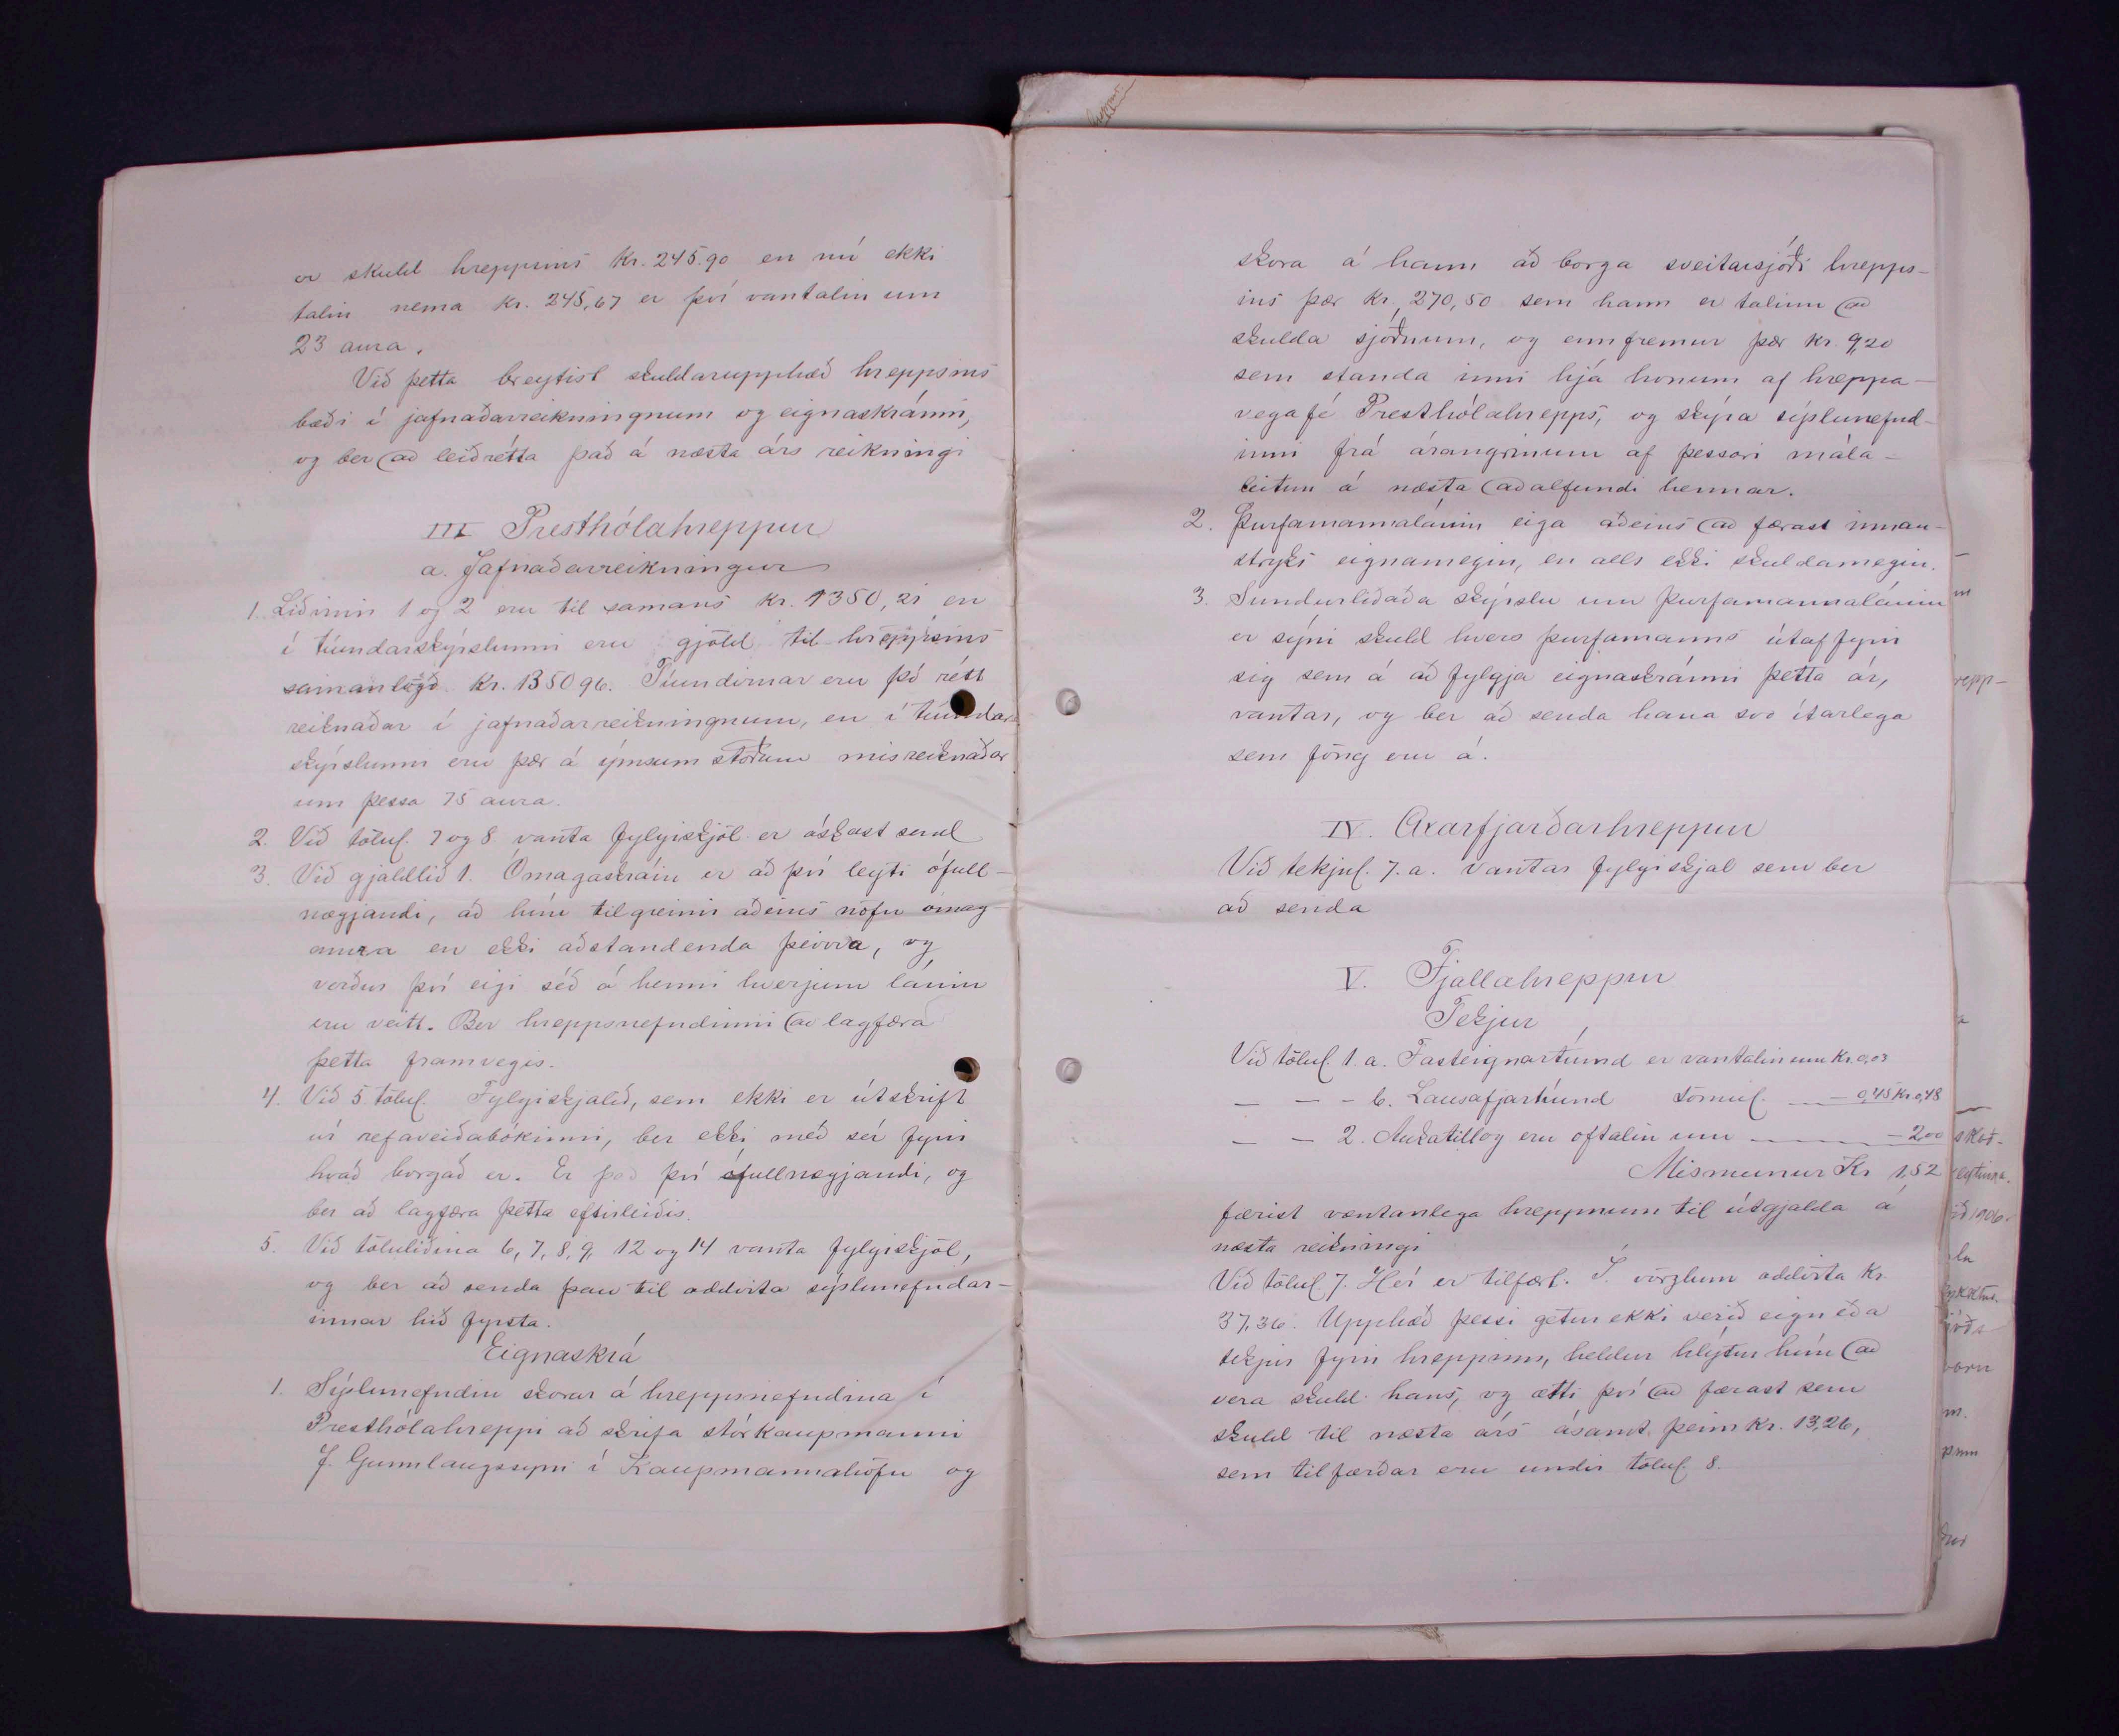 er skuld hreppsins kr. 245.90 en nú ekki
talin nema kr. 245,67 er því vantalin um
23 aura.
Við þetta breytist skuldarupphæð hreppsins
bæði í jafnaðarreikningnum og eignaskránni,
og ber að leiðrétta það á næsta árs reikningi
III Presthólahreppur
a. Jafnaðarreikningur
1. Liðirnir 1 og 2 eru til samans kr. 1350,21 en
í tíundarskýrslunni eru gjöld til hreppsins
samanlögð kr. 1350 96. Tíundirnar eru þó rétt
reiknaðar í jafnaðarreikningnum, en í tíundar-
skýrslunni eru þær á ýmsum stöðum misreiknaðar
um þessa 75 aura.
2. Við tölul. 7 og 8 vanta fylgiskjöl er óskast send
3. Við gjaldlið 1. Ómagaskráin er að því leyti ófull-
nægjandi, að hún tilgreinir aðeins nöfn ómag-
anna en ekki aðstandenda þeirra, og
verður því eigi séð á henni hverjum lánin
eru veitt. Ber hreppsnefndinni að lagfæra
þetta framvegis.
4. Við 5. tölul. Fylgiskjalið, sem ekki er útskrift
úr refaveiðabókinni, ber ekki með sér fyrir
hvað borgað er. Er það því ófullnægjandi, og
ber að lagfæra þetta eftirleiðis.
5. Við töluliðina 6, 7, 8, 9, 12 og 14 vanta fylgiskjöl,
og ber að senda þau til oddvita sýslunefndar-
innar hið fyrsta.
Eignaskrá
1. Sýslunefndin skorar á hreppsnefndina í
Presthólahreppi að skrifa stórkaupmanni
J. Gunnlaugssyni í Kaupmannahöfn og
skora á hann að borga sveitarsjóði hrepps-
ins þær kr. 270,50 sem hann er talinn að
skulda sjóðnum, og ennfremur þær kr. 9,20
sem standa inni hjá honum af hreppa-
vegafé Presthólahrepps, og skýra sýslunefnd-
inni frá árangrinum af þessari mála-
leitun á næsta aðalfundi hennar.
2. Þurfamannalánin eiga aðeins að færast innan-
stryks eignamegin, en alls ekki skuldamegin.
3. Sundurliðaða skýrslu um þurfamannalánin
er sýni skuld hvers þurfamanns útaf fyrir
sig sem á að fylgja eignaskránni þetta ár,
vantar, og ber að senda hana svo ítarlega
sem föng eru á.
IV. Axarfjarðarhreppur
Við tekjul. 7. a. vantar fylgiskjal sem ber
að senda
V. Fjallahreppur
Tekjur
Við tölul. 1. a. Fasteignartíund er vantalin um Kr. 0,03
— — - b. Lausafjartíund sömul. — - 0,45 Kr 0,48
— — 2. Aukatillög eru oftalin um — — - 2,00
Mismunur Kr 1,52
færist væntanlega hreppnum til útgjalda á
næsta reikningi
Við tölul. 7. Hér er tilfært. Í vörzlum oddvita kr
37,36. Upphæð þessi getur ekki verið eign eða
tekjur fyrir hreppinn, heldur hlýtur hún að
vera skuld hans, og ætti því að færast sem
skuld til næsta árs ásamt þeim kr. 13,26,
sem tilfærðar eru undir tölul. 8.